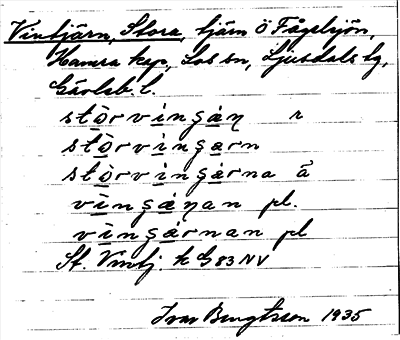 Vintjärn, Stora, tjärn Ö Fågelsjön,
Hamra kap, Los sn, Ljusdals tg,
Gävleb. l.
stòrvingáṇ r
stòrvingarn
stòrvingárna ä
vìngáṇan pl.
vìngárnan pl
St. Vintj. k G 83 NV
Ivar Bengtsson 1935